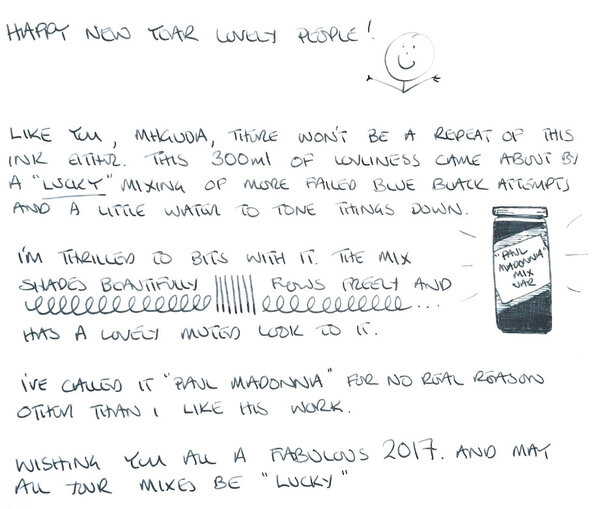 HAPPY NEW YEAR LOVELY PEOPLE!
LIKE YOU, MHGUDA, THERE WON'T BE A REPEAT OF THIS
INK EITHER. THIS 300ml OF LOVLINESS CAME ABOUT BY
A "LUCKY" MIXING OF MORE FAILED BLUE BLACK ATTEMPTS
AND A LITTLE WATER TO TONE THINGS DOWN.
I'M THRILLED TO BITS WITH IT. THE MIX
SHADES BEAUTIFULLY FLOWS FREELY AND
...
HAS A LOVELY MUTED LOOK TO IT.
"PAUL
MADONNA"
MIX
JAR
I'VE CALLED IT "PAUL MADONNA" FOR NO REAL REASON
OTHER THAN I LIKE HIS WORK.
WISHING YOU ALL A FABULOUS 2017. AND MAY
ALL YOUR MIXES BE "LUCKY"